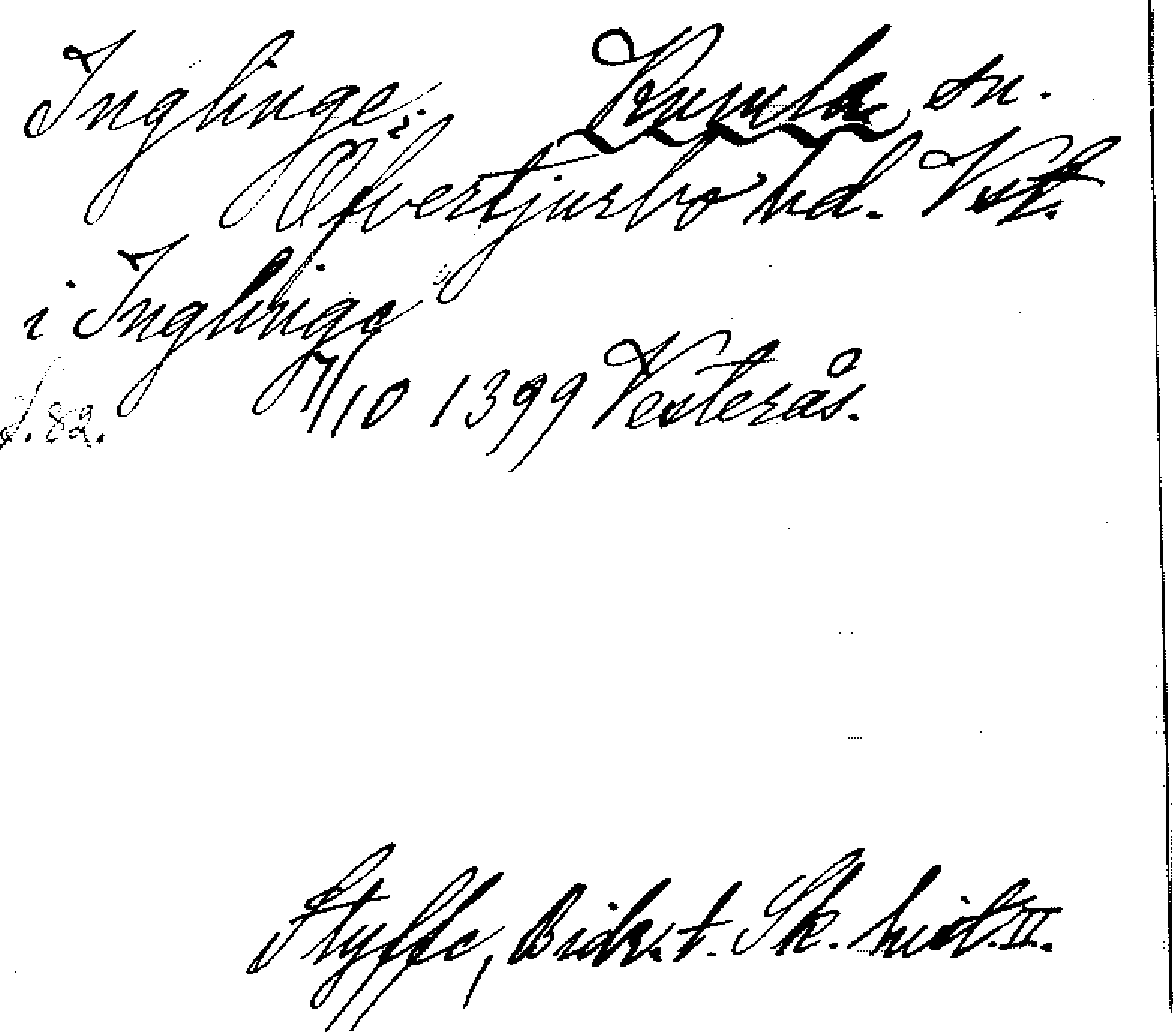 Inglinge. Kumla sn.
Öfvertjurbo hd. Vstl.
i Inglinge
s. 82. 7/10 1399 Vesterås.
Styffe, Bidr. t. Sk. hist. II.